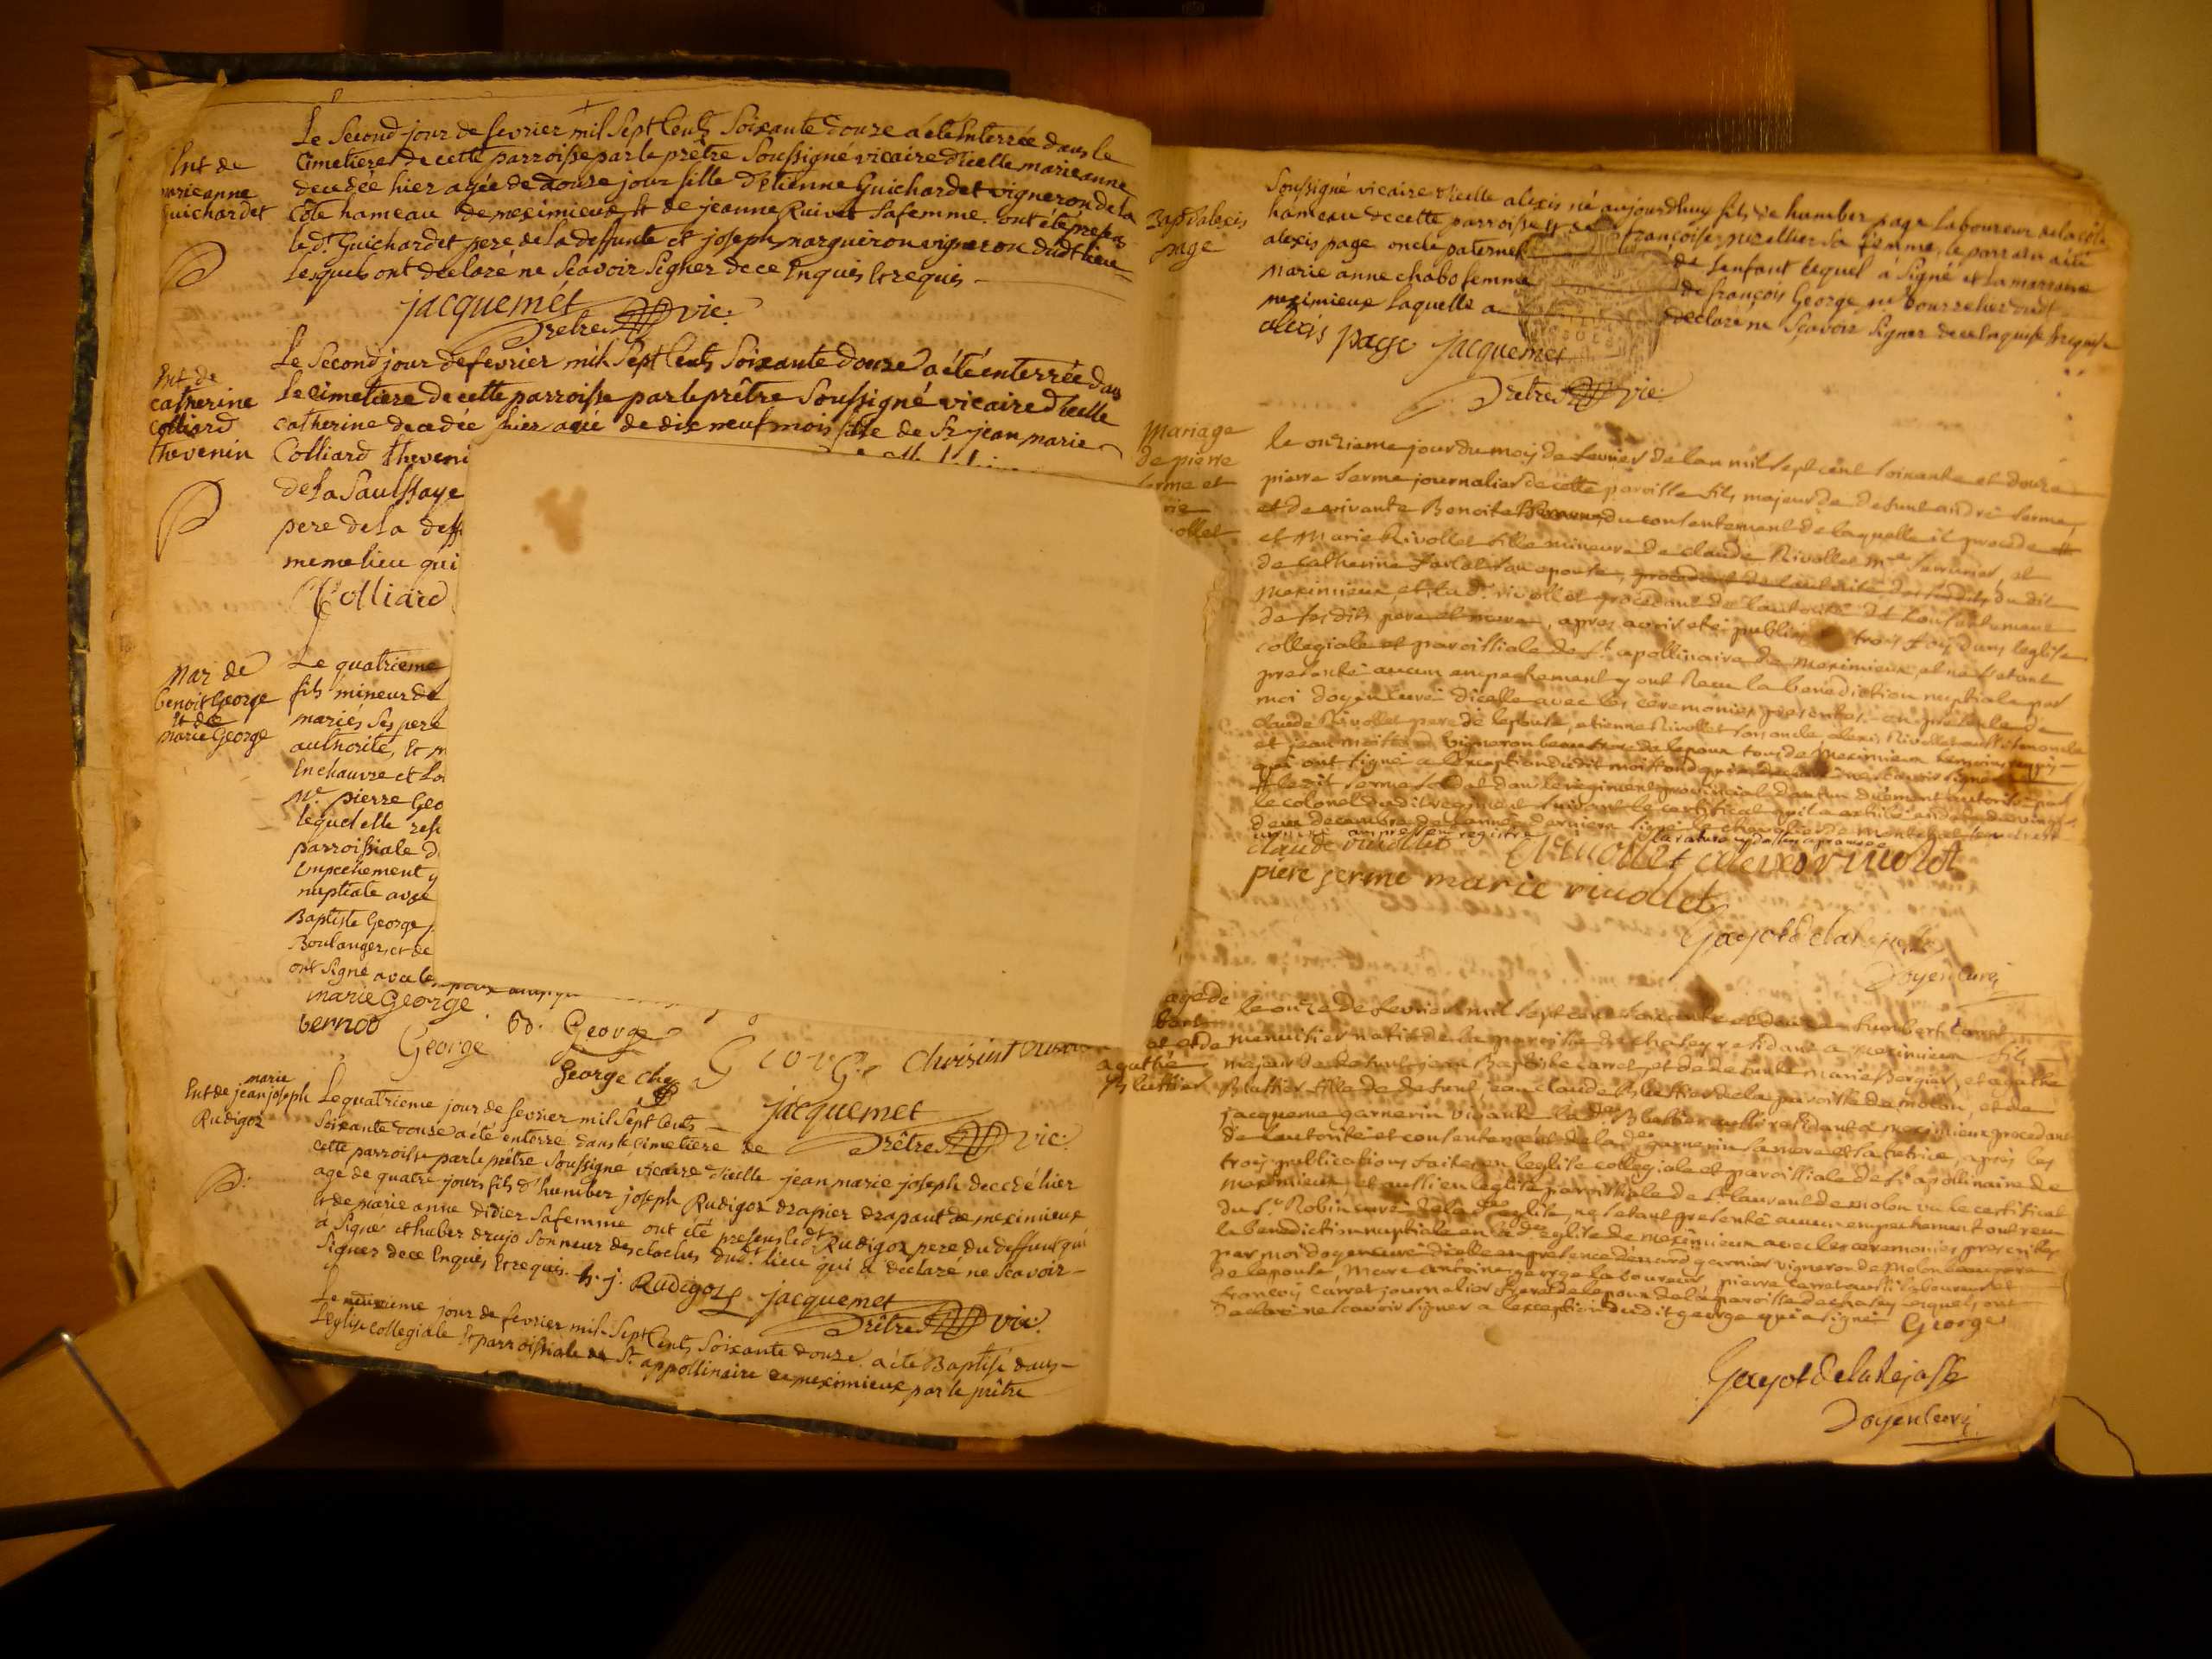 Ent de
marie anne
Guichardet
Le Second jour de fevrier mil Sept Cents Soixante douze a été Enterrée dans le
Cimetiere de cette parroisse par le prêtre Soussigné vicaire d'icelle marie anne
decedée hier agée de douze jour fille d'Etienne Guichardet vigneron de la
Côte hameau de meximieux et de jeanne Ruivet Sa femme. ont été presens
le dt. Guichardet pere de la deffunte et joseph marguiron vigneron dudt lieu
Lesquels ont declaré ne Scavoir Signer de ce Enquis et requis -
jacquemet
Prêtre vic.
Ent. de
catherine
Colliard
thevenin
Le Second jour de fevrier mil Sept Cents Soixante douze a été enterrée dans
Le Cimetiere de cette parroisse par le prêtre Soussigné vicaire d'icelle
catherine decedée hier agée de dix neuf mois fille de Sr. jean marie
Colliard theveni
de la Saulsaye
pere de la deff
meme lieu qui
Colliard
Mar de
benoit George
Et de
marie George
Le quatrieme
fils mineur de
mariés Ses pere
authorité, Et m
En chauvre et La
Me. pierre Geo
lequel elle resi
parroissiale d
Empechement y
nuptiale avec
Baptiste George
Boulanger, et de
ont Signé avec les
marie George
bernod
George
bd. George
George
George Choisint
jacquemet
Prêtre vic.
Ent de jean marie joseph
Rudigoz
Le quatrieme jour de fevrier mil Sept Cents
Soixante douze a été enterré dans le Cimetiere de
cette parroisse par le prêtre Soussigné vicaire d'icelle jean marie joseph decedé hier
agé de quatre jours fils d'humber joseph Rudigoz drapier drapant de meximieux
et de marie anne didier Sa femme ont été presens led. Rudigoz pere du deffunt qui
a Signé et huber drujo Sonneur des cloches dudt. lieu qui a déclaré ne Scavoir -
Signer de ce Enquis Et requis. h. j. Rudigoz jacquemet
Prêtre vic.
Le neuvieme jour de fevrier mil Sept Cents Soixante douze a été Baptisé dans
L'eglise Collegiale et parroissiale de St. appollinaire de meximieux par le prêtre
Bap d'alexis
page
Soussigné vicaire d'icelle alexis né aujourdhuy fils de humber page laboureur de la côte
hameau de cette parroisse et de françoise sa femme, le parrain a été
alexis page oncle paternel de l'enfant lequel a Signé et la marraine
Marie anne chabo femme de françois George me bourrelier dudt
meximieux laquelle a déclaré ne Scavoir Signer de ce enquise requise
alexis page jacquemet
Prêtre vic.
Mariage
de pierre
serme et
rie
ollet
le onzieme jour du mois de fevrier de l'an mil sept cent soixante et douze
pierre serme journalier de cette paroisse fils majeur de defunt andré serme
et de vivante Benoite du consentement de laquelle il procede
et Marie Rivollet fille mineure de claude Rivollet me serrurier, et
de catherine son epouse, procedant de l'autorité du dit
meximieux, et lad. rivollet procedant de l'autorité et consentement
de ses dits pere et mere, apres avoir été publiés trois fois dans l'eglise
collegiale et paroissiale de St. apollinaire de meximieux et ne s'etant
presenté aucun empechement y ont Receu la benediction nuptiale par
moi doyen curé d'icelle avec les ceremonies prescrites en presence de
claude Rivollet pere de l'epouse, etienne Rivollet son oncle alexis Rivollet aussi son oncle
et jean vigneron beau frere de l'epoux tous de Meximieux temoins requis
qui ont signé a l'exception dudit
le colonel dudit regiment suivant le certificat
claude rivollet alexis rivolet
piere serme marie riuollet
Gayot de la Rejasse
Doyen Curé
agathe
Bluttier
le onze de fevrier mil sept cent soixante et douze humbert Carret
menuisier natif de la paroisse de chaley residant a meximieux fils
majeur de defunt jean Baptiste Carret et de defunte Marie Bergier, et agathe
Bluttier fille de defunt jean claude Bluttier de la paroisse de molon, et de
jacqueme garnerin vivante la de. Bluttier aussi residant a meximieux procedant
de l'autorité et consentement de la de. garnerin sa mere et sa tutrice, apres les
trois publications faites en l'eglise collegiale et paroissiale de St. apollinaire de
meximieux, et aussi en l'eglise paroissiale de St. laurent de molon vu le certificat
du Sr. Robin curé de la de. eglise, ne s'etant presenté aucun empechement ont reçu
la benediction nuptiale en la de. eglise de meximieux avec les ceremonies prescrites
par moi doyen curé d'icelle en presence de garnier vigneron de Molon beau pere
de l'epouse, Marc antoine george laboureur, pierre Carret aussi laboureur et
françois Carret journalier freres de l'epoux de la paroisse de chaley lesquels ont
declaré ne scavoir signer a l'exception dudit george qui a signé George
Gayot de la Rejasse
Doyen Curé